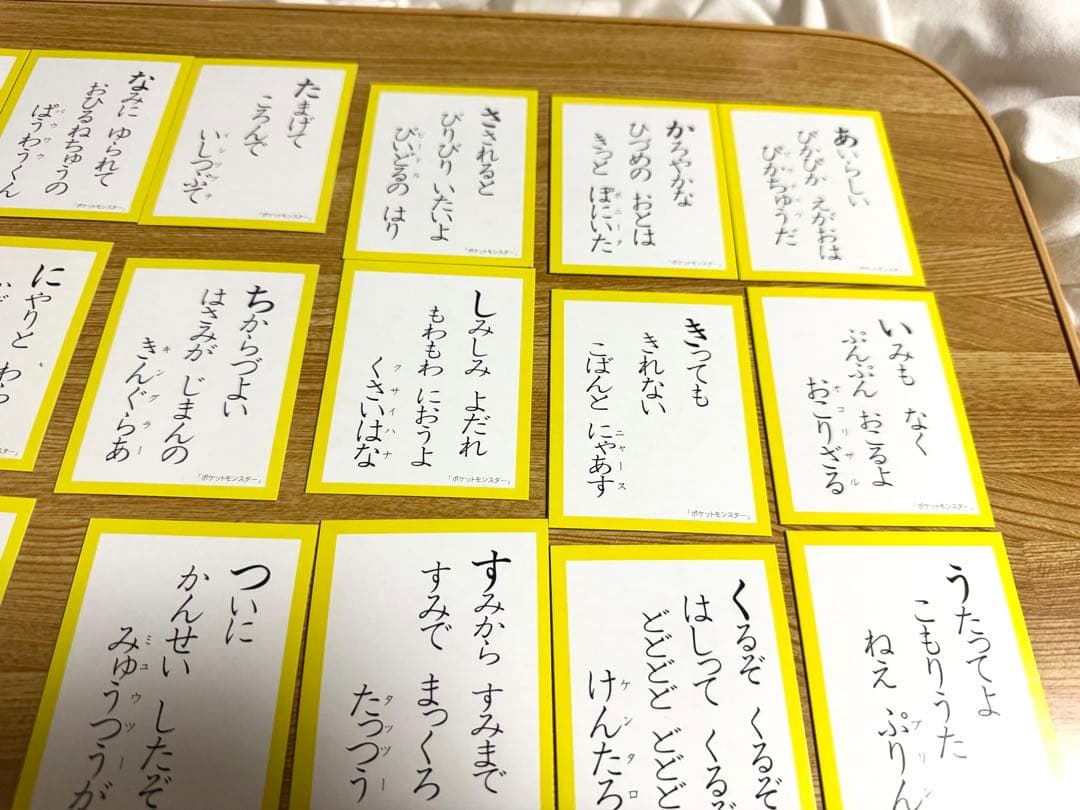 あいらしい
ぴかぴか えがおは
ピカチュウ
ぴかちゅうだ
「ポケットモンスター」
かろやかな
ひづめの おとは
ポニータ
きっと ぽにいた
「ポケットモンスター」
さされると
びりびり いたいよ
ビードル
びいどるの はり
「ポケットモンスター」
たまげて
ころんで
イシツブテ
いしつぶて
「ポケットモンスター」
なみに ゆられて
おひるねちゅうの
パウワウ
ぱうわうくん
「ポケットモンスター」
いみも なく
ぷんぷん おこるよ
オコリザル
おこりざる
「ポケットモンスター」
きっても
きれない
ニャース
こばんと にゃあす
「ポケットモンスター」
しみしみ よだれ
もわもわ におうよ
クサイハナ
くさいはな
「ポケットモンスター」
ちからづよい
はさみが じまんの
キングラー
きんぐらあ
「ポケットモンスター」
にやりと
うたってよ
こもりうた
プリン
ねえ ぷりん
くるぞ くるぞ
はしって くるぞ
どどどど どどど
ケンタロ
けんたろ
すみから すみまで
すみで まっくろ
タッツー
たっつう
ついに
かんせい したぞ
ミュウツー
みゅうつうが